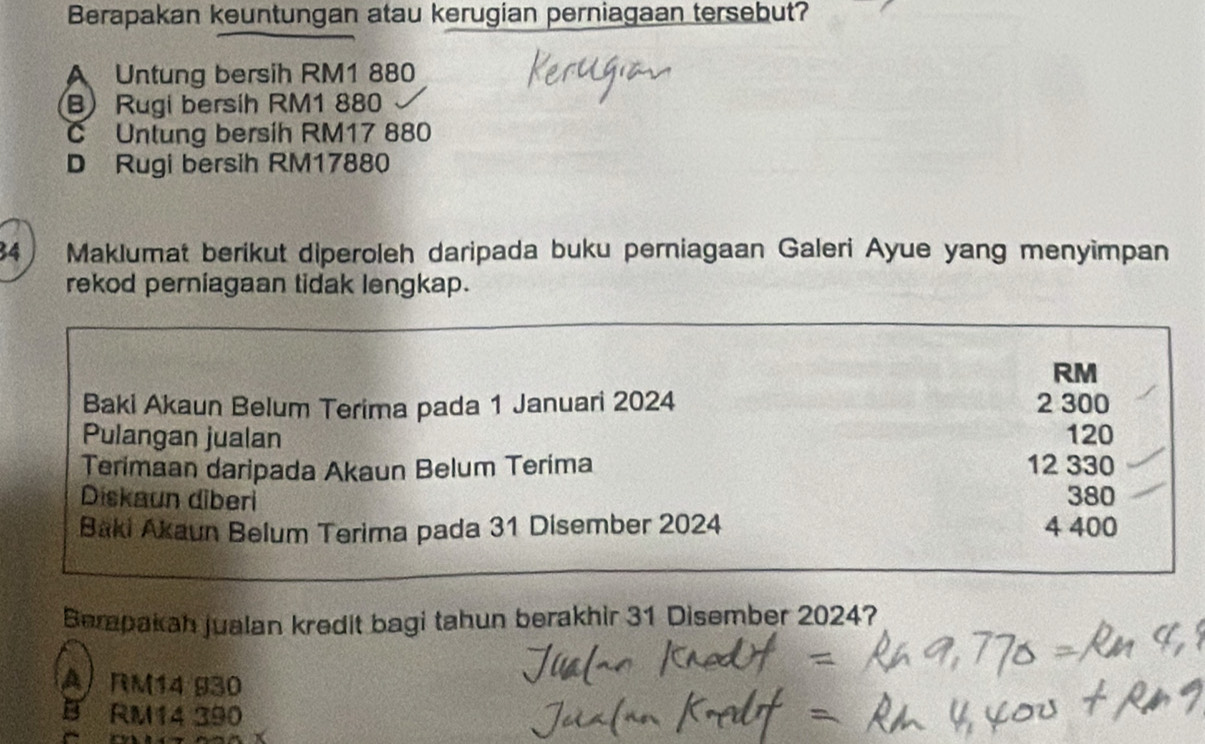 Berapakan keuntungan atau kerugian perniagaan tersebut?
A Untung bersih RM1 880
Kerugian
B Rugi bersih RM1 880
C Untung bersih RM17 880
D Rugi bersih RM17880
34 Maklumat berikut diperoleh daripada buku perniagaan Galeri Ayue yang menyimpan
rekod perniagaan tidak lengkap.
RM
Baki Akaun Belum Terima pada 1 Januari 2024 2 300
Pulangan jualan 120
Terimaan daripada Akaun Belum Terima 12 330
Diskaun diberi 380
Baki Akaun Belum Terima pada 31 Disember 2024 4 400
Berapakah jualan kredit bagi tahun berakhir 31 Disember 2024?
Jualan Kredit = Rm 9,770 = Rm 4,
A RM14 930
B RM14 390
Jualan Kredit = Rm 4,400 + Rm 9